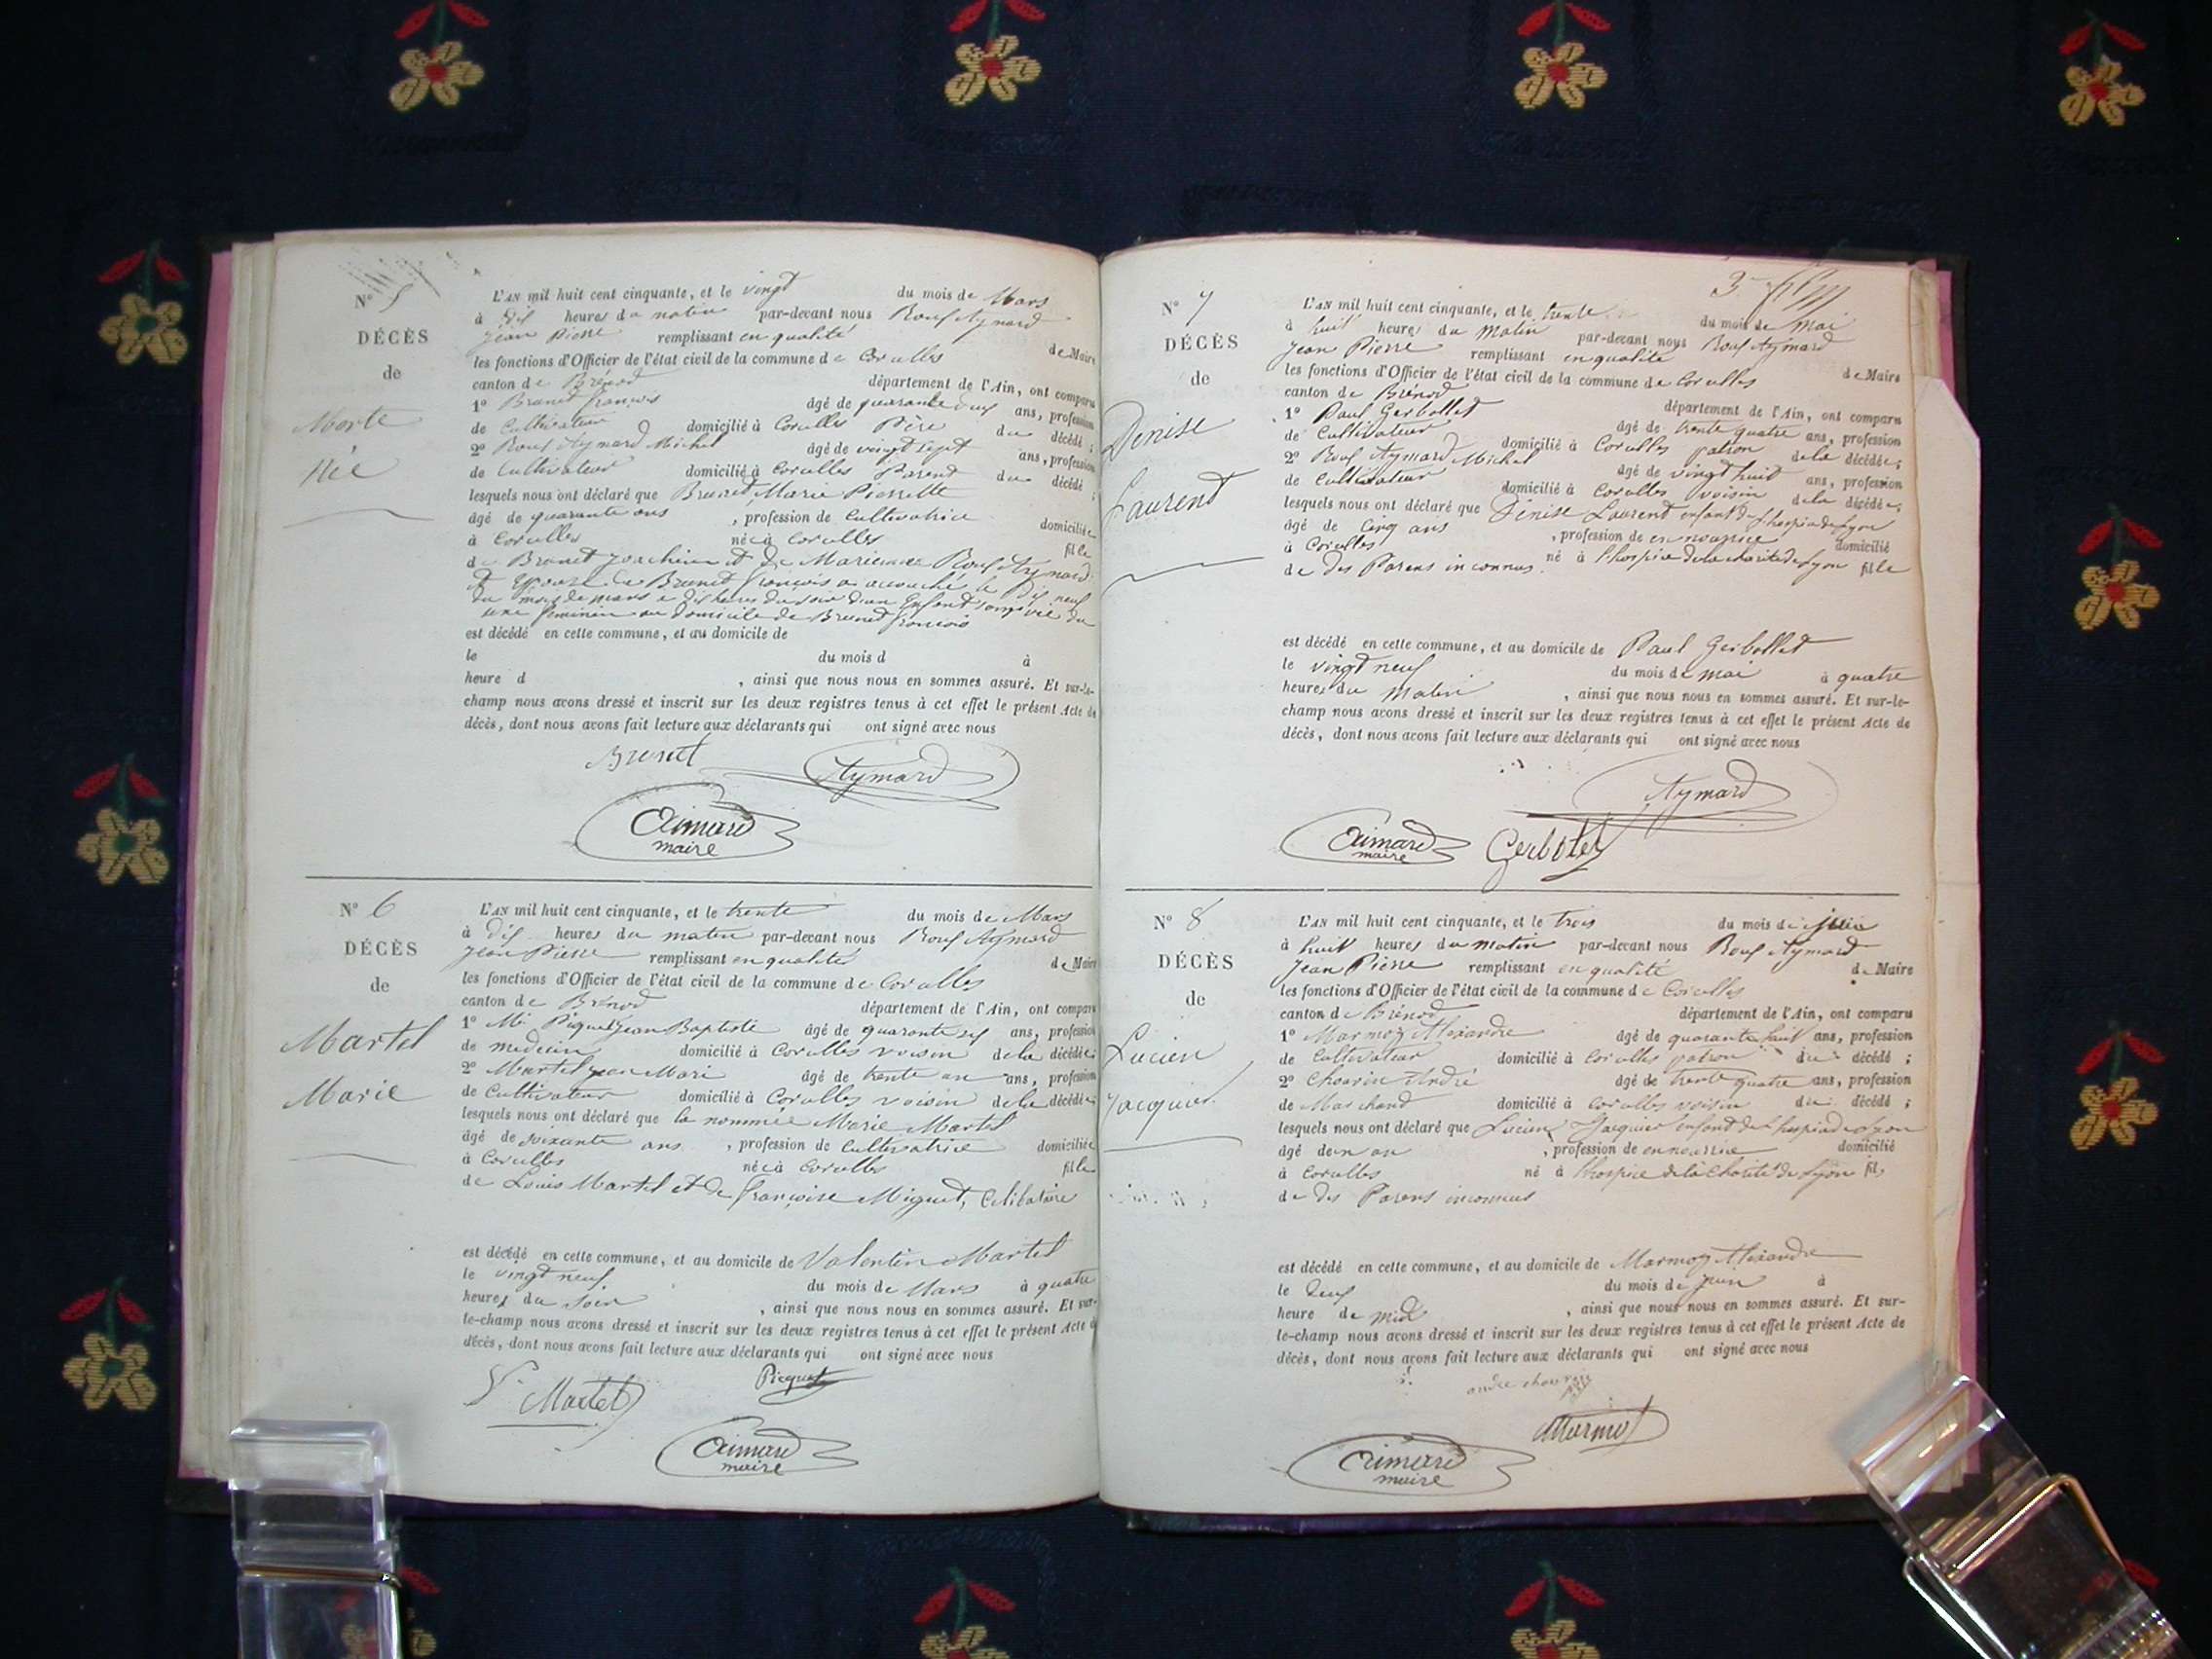 N° 5
DÉCÈS
de
Morte
née
L'AN mil huit cent cinquante, et le vingt du mois de Mars
à dix heures du matin par-devant nous Roux Aymard
Jean Pierre remplissant en qualité de Maire
les fonctions d'Officier de l'état civil de la commune de Corcelles
canton de Brénod département de l'Ain, ont comparu
1° Brunet françois âgé de quarante deux ans, profession
de Cultivateur domicilié à Corcelles Père du décédé ;
2° Roux Aymard Michel âgé de vingt sept ans, profession
de Cultivateur domicilié à Corcelles Parent du décédé ;
lesquels nous ont déclaré que Brunet Marie Pierrette
âgé de quarante ans , profession de Cultivatrice domiciliée
à Corcelles née à Corcelles fille
de Brunet Joachim et de Marianne Roux Aymard
et Epouse de Brunet françois a accouchée le Dix neuf
du mois de mars à dix heures du soir d'un Enfant sans vie du
sexe féminin au domicile de Brunet françois
est décédé en cette commune, et au domicile de
le du mois d à
heure d , ainsi que nous nous en sommes assuré. Et sur-le-
champ nous avons dressé et inscrit sur les deux registres tenus à cet effet le présent Acte de
décès, dont nous avons fait lecture aux déclarants qui ont signé avec nous
Brunet Aymard
Aimard
maire
N° 6
DÉCÈS
de
Martel
Marie
L'AN mil huit cent cinquante, et le trente du mois de Mars
à dix heures du matin par-devant nous Roux Aymard
Jean Pierre remplissant en qualité de Maire
les fonctions d'Officier de l'état civil de la commune de Corcelles
canton de Brénod département de l'Ain, ont comparu
1° Mr Piquet Jean Baptiste âgé de quarante six ans, profession
de medecin domicilié à Corcelles voisin de la décédée ;
2° Martel Jean Mari âgé de trente un ans, profession
de Cultivateur domicilié à Corcelles voisin de la décédée ;
lesquels nous ont déclaré que la nommée Marie Martel
âgé de soixante ans , profession de Cultivatrice domiciliée
à Corcelles née à Corcelles fille
de Louis Martel et de françoise Miguet, Célibataire
est décédé en cette commune, et au domicile de Valentin Martel
le vingt neuf du mois de Mars à quatre
heures du soir , ainsi que nous nous en sommes assuré. Et sur-
le-champ nous avons dressé et inscrit sur les deux registres tenus à cet effet le présent Acte d
décès, dont nous avons fait lecture aux déclarants qui ont signé avec nous
Martel Picquet
Aimard
maire
3
N° 7
DÉCÈS
de
Denise
Laurent
L'AN mil huit cent cinquante, et le trente du mois de mai
à huit heures du matin par-devant nous Roux Aymard
Jean Pierre remplissant en qualité de Maire
les fonctions d'Officier de l'état civil de la commune de Corcelles
canton de Brénod département de l'Ain, ont comparu
1° Paul Gerbollet âgé de trente quatre ans, profession
de Cultivateur domicilié à Corcelles patron de la décédée ;
2° Roux Aymard Michel âgé de vingt huit ans, profession
de Cultivateur domicilié à Corcelles voisin de la décédée ;
lesquels nous ont déclaré que Denise Laurent enfant de l'hospice de Lyon
âgé de Cinq ans , profession de en nourrice domicilié
à Corcelles né à l'hospice de la charité de Lyon fille
de des Parens inconnus
est décédé en cette commune, et au domicile de Paul Gerbollet
le vingt neuf du mois de mai à quatre
heures du matin , ainsi que nous nous en sommes assuré. Et sur-le-
champ nous avons dressé et inscrit sur les deux registres tenus à cet effet le présent Acte de
décès, dont nous avons fait lecture aux déclarants qui ont signé avec nous
Aymard
Aimard Gerbolet
maire
N° 8
DÉCÈS
de
Lucien
Jacquier
L'AN mil huit cent cinquante, et le trois du mois de juin
à huit heures du matin par-devant nous Roux Aymard
Jean Pierre remplissant en qualité de Maire
les fonctions d'Officier de l'état civil de la commune de Corcelles
canton de Brénod département de l'Ain, ont comparu
1° Marmoz Alexandre âgé de quarante huit ans, profession
de Cultivateur domicilié à Corcelles patron du décédé ;
2° Chouvin André âgé de trente quatre ans, profession
de Marchand domicilié à Corcelles voisin du décédé ;
lesquels nous ont déclaré que Lucien Jacquier enfant de l'hospice de Lyon
âgé de un an , profession de en nourrice domicilié
à Corcelles né à l'hospice de la Charité de Lyon fils
de des Parens inconnus
est décédé en cette commune, et au domicile de Marmoz Alexandre
le deux du mois de juin à
heure de midi , ainsi que nous nous en sommes assuré. Et sur-
le-champ nous avons dressé et inscrit sur les deux registres tenus à cet effet le présent Acte de
décès, dont nous avons fait lecture aux déclarants qui ont signé avec nous
andre
Marmoz
Aimard
maire